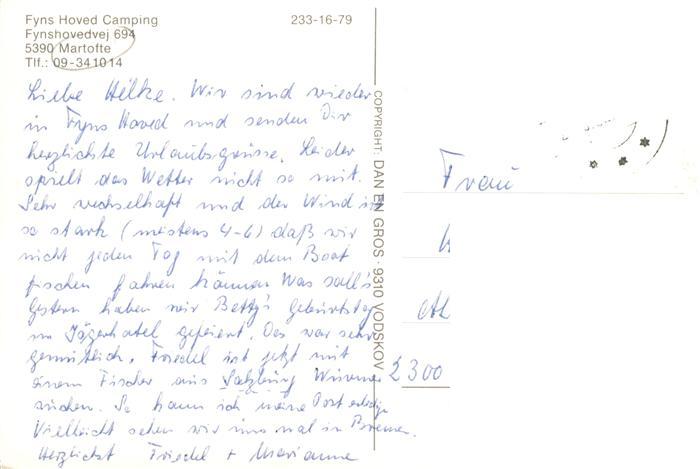 Fyns Hoved Camping
Fynshovedvej 694
5390 Martofte
Tlf.: 09-341014
233-16-79
Liebe Hilke. Wir sind wieder
in Fyns Hoved und senden Dir
herzlichste Urlaubsgrüsse. Leider
spielt das Wetter nicht so mit.
Sehr wechselhaft und der Wind ist
so stark (meistens 4-6) daß wir
nicht jeden Tag mit dem Boot
fischen fahren können. Was soll's
Gestern haben wir Betty's Geburtstag
im Jägerhotel gefeiert. Das war sehr
gemütlich. Friedel ist jetzt mit
einem Fischer aus Salzburg Würmer
suchen. So kann ich meine Post erledigen
Vielleicht sehen wir uns mal in Bremen.
Herzlichst Friedel + Marianne
COPYRIGHT: DAN EN GROS · 9310 VODSKOV
Frau
2300